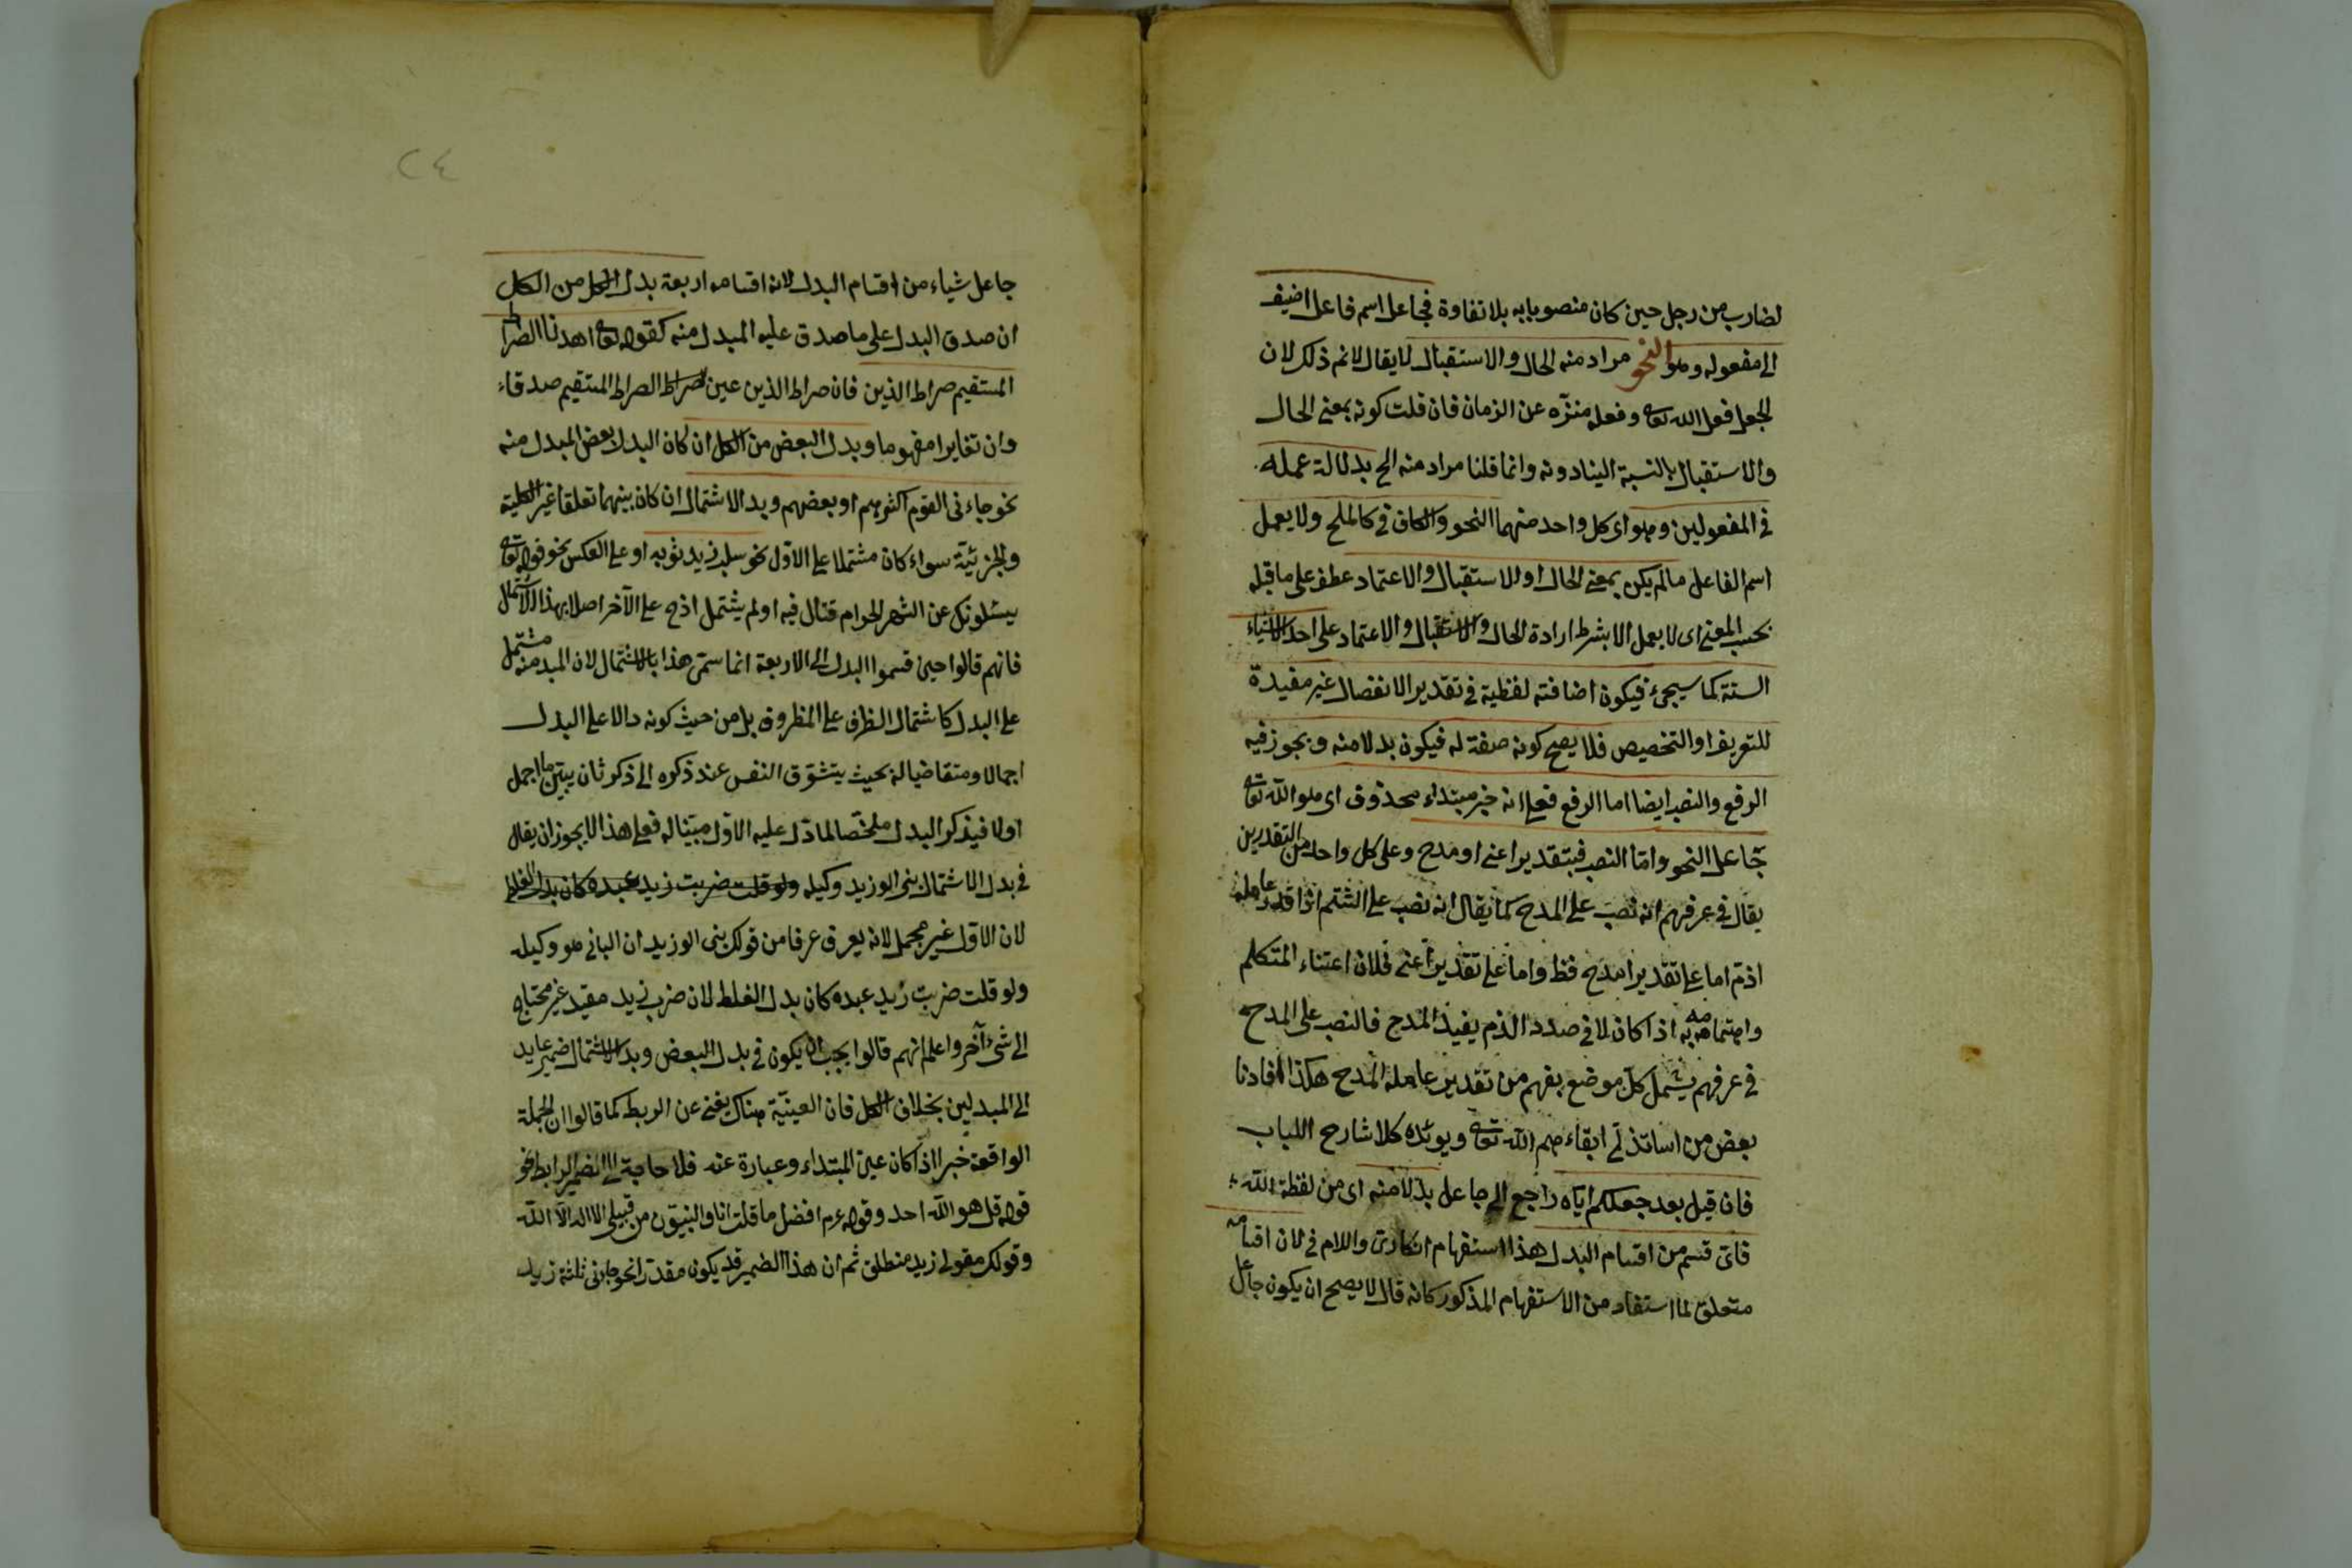 لضارب من رجل حين كان منصوبا به بلا تفاوة فجاعل اسم فاعل اضيف
الى مفعوله وهو النحو مراد منه الحال والاستقبال لا يقال لانم ذلك لان
الجعل فعل الله تعا وفعله منزه عن الزمان فان قلت كونه بمعنى الحال
والاستقبال بالنسبة الينا دونه وانما قلنا مراد منه الح بدلالة عمله
في المفعولين وهو اى كل واحد منهما النحو والكاف في كالملح ولا يعمل
اسم الفاعل ما لم يكن بمعنى الحال او الاستقبال والاعتماد عطف على ما قبله
بحسب المعنى اى لا يعمل الا بشرط ارادة الحال والاستقبال والاعتماد على احد الاشياء
الستة كما سيجئ فيكون اضافته لفظية في تقدير الانفصال غير مفيدة
للتعريف او التخصيص فلا يصح كونه صفة له فيكون بدلا منه ويجوز فيه
الرفع والنصب ايضا اما الرفع فعلى انه خبر مبتداء محذوف اى هو الله تعا
جاعل النحو واما النصب فبتقدير اعنى او مدح وعلى كل واحد من التقديرين
يقال في عرفهم انه نصب على المدح كما يقال انه نصب على الشتم اذا قدر عامله
اذم اما على تقدير امدح فظ واما على تقدير اعنى فلان اعتناء المتكلم
واهتمامه به اذا كان لا في صدد الذم يفيد المدح فالنصب على المدح
في عرفهم يشمل كل موضع يفهم من تقدير عامله المدح هكذا افادنا
بعض من اساتذتى ابقاءهم الله تعا ويويده كلا شارح اللباب
فان قيل بعد جعلكم اياه راجع الى جاعل بدلا منه اى من لفظة الله
فاى قسم من اقسام البدل هذا استفهام انكارى واللام في لان اقسامه
متعلق لما استفاد من الاستفهام المذكور كانه قال لا يصح ان يكون جاعل
٢٤
جاعل شياء من اقسام البدل لان اقسامه اربعة بدل الكل من الكل
ان صدق البدل على ما صدق عليه المبدل منه كقوله تعا اهدنا الصراط
المستقيم صراط الذين فان صراط الذين عين الصراط المستقيم صدقاء
وان تغايرا مفهوما وبدل البعض من الكل ان كان البدل بعض المبدل منه
نحو جاءنى القوم اكثرهم او بعضهم وبد الاشتمال ان كان بينهما تعلقا غير الكلية
والجزئية سواء كان مشتملا على الاول نحو سلب زيد ثوبه او على العكس نحو قوله تعا
يسئلونك عن الشهر الحرام قتال فيه او لم يشتمل اذح على الآخر اصلا بهذا الاشتمال
فانهم قالوا حين قسموا البدل الى الاربعة انما سمى هذا بالاشتمال لان المبد منه مشتمل
على البدل كاشتمال الظرف على المظروف بل من حيث كونه دالا على البدل
اجمالا ومتقاضيا له بحيث يتشوق النفس عند ذكره الى ذكر ثان يبين ما اجمل
اولا فيذكر البدل ملخصا لما دل عليه الاول مبينا له فعلى هذا لا يجوز ان يقال
في بدل الاشتمال بنى الوزيد وكيله ولو قلت ضربت زيد عبده كان بدل الغلط
لان الاول غير مجمل لانه يعرف عرفا من قولك بنى الوزيد ان البانى هو وكيله
ولو قلت ضربت زيد عبده كان بدل الغلط لان ضرب زيد مقيد غير محتاج
الى شئ آخر واعلم انهم قالوا يجب ان يكون في بدل البعض وبدل الاشتمال ضمير عايد
الى المبدلين بخلاف الكل فان العينية هناك يغنى عن الربط كما قالوا ان الجملة
الواقعة خبرا اذا كان عين المبتداء وعبارة عنه فلا حاجة الى الضمير الرابط نحو
قوله قل هو الله احد وقوله عرم افضل ما قلت انا والنبيون من قبلى لا اله الا الله
وقولك مقولى زيد منطلق ثم ان هذا الضمير قد يكون مقدرا نحو جاءنى ثلثة زيد